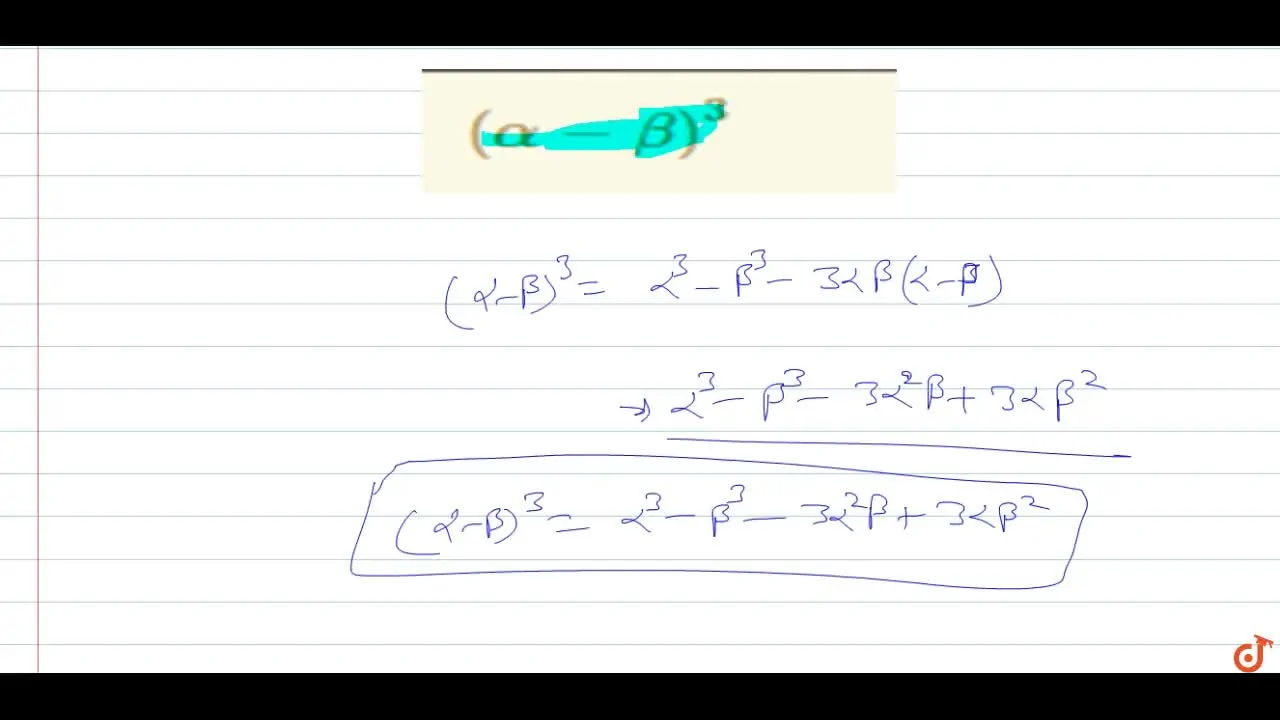 (α − β)³
(α-β)³ = α³ - β³ - 3αβ(α-β)
→ α³ - β³ - 3α²β + 3αβ²
(α-β)³ = α³ - β³ - 3α²β + 3αβ²